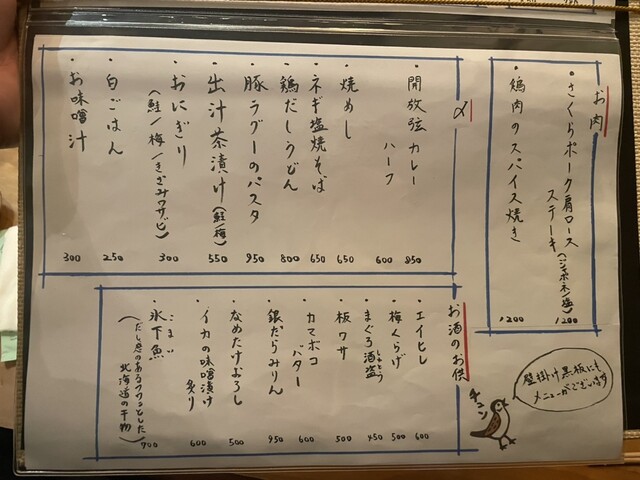 お肉
・さくらポーク肩ロース
ステーキ(ジャポネ/塩) 1200
・鶏肉のスパイス焼き 1200
〆
・開放弦カレー 850
ハーフ 600
・焼めし 650
・ネギ塩焼そば 650
・鶏だしうどん 800
・豚ラグーのパスタ 950
・出汁茶漬け(鮭/梅) 550
・おにぎり 300
(鮭/梅/きざみワサビ)
・白ごはん 250
・お味噌汁 300
お酒のお供
・エイヒレ 600
・梅くらげ 500
・まぐろ酒盗 450
しゅとう
・板ワサ 500
・カマボコ
バター 600
・銀だらみりん 950
・なめたけおろし 500
・イカの味噌漬け
炙り 600
・氷下魚 900
こまい
(だし感のあるフワッとした
北海道の干物)
壁掛け黒板にも
メニューがございます
チュン